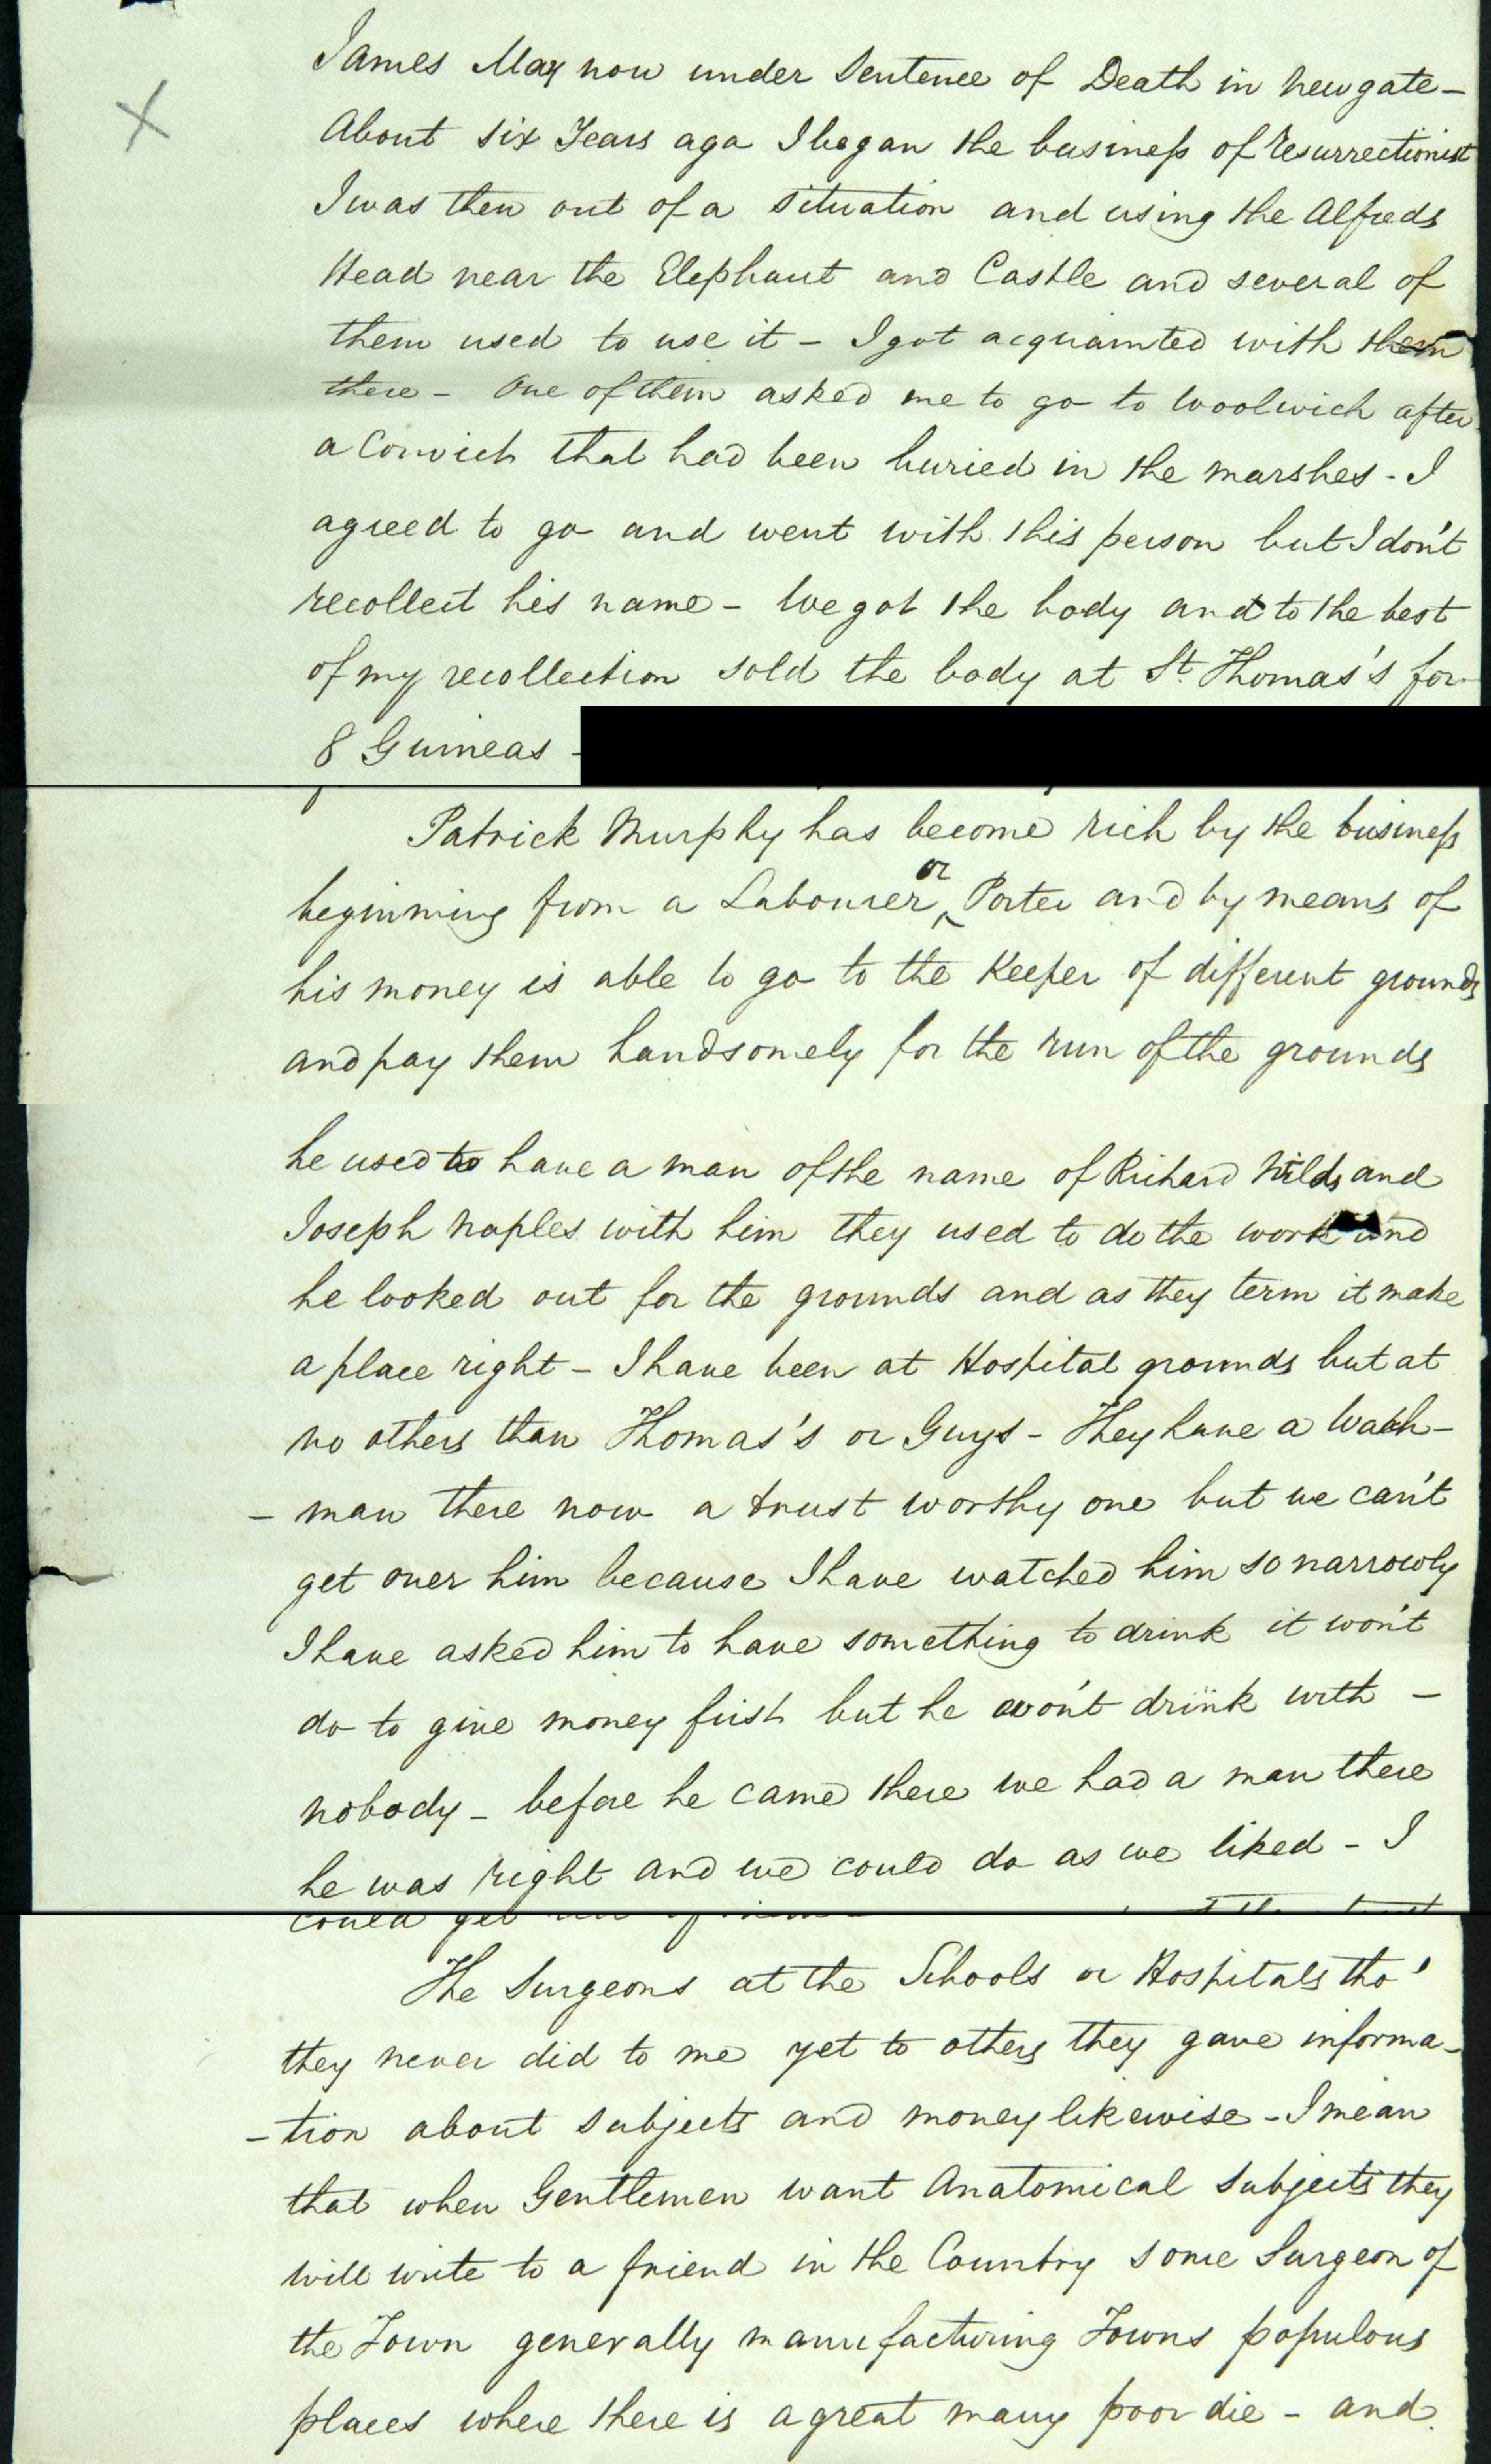 James May now under Sentence of Death in Newgate –
About six Years ago I began the business of resurrectionist
I was then out of a situation and using the Alfreds
Head near the Elephant and Castle and several of
them used to use it – I got acquainted with them
there – One of them asked me to go to Woolwich after
a Convict that had been buried in the marshes – I
agreed to go and went with this person but I don't
recollect his name – We got the body and to the best
of my recollection sold the body at St. Thomas's for
8 Guineas –
Patrick Murphy has become rich by the business
beginning from a Labourer or Porter and by means of
his money is able to go to the Keeper of different grounds
and pay them handsomely for the run of the grounds
he used to have a man of the name of Richard Wilds and
Joseph Naples with him they used to do the work and
he looked out for the grounds and as they term it make
a place right – I have been at Hospital grounds but at
no others than Thomas's or Guys – They have a Watch –
– man there now a trust worthy one but we can't
get over him because I have watched him so narrowly
I have asked him to have something to drink it won't
do to give money first but he won't drink with –
nobody – before he came there we had a man there
he was right and we could do as we liked – I
could get
The Surgeons at the Schools or Hospitals tho'
they never did to me yet to others they gave informa –
– tion about subjects and money likewise – I mean
that when Gentlemen want Anatomical Subjects they
will write to a friend in the Country some Surgeon of
the Town generally manufacturing Towns populous
places where there is a great many poor die – and